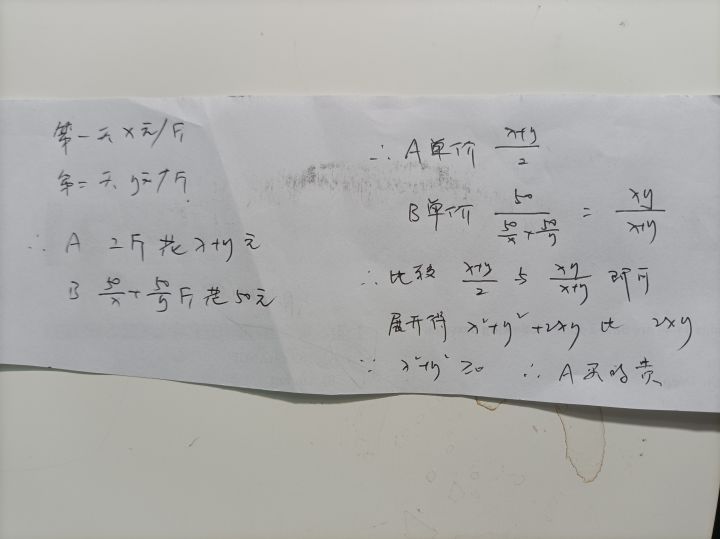 第一天 x元/斤
第二天 y元/斤
∴ A 2斤花 x+y元
B 50/x + 50/y 斤花50元
∴ A单价 x+y/2
B单价 50/(50/x + 50/y) = xy/x+y
∴ 比较 x+y/2 与 xy/x+y 即可
展开得 x²+y²+2xy 比 2xy
∵ x²+y² ≥0 ∴ A买的贵